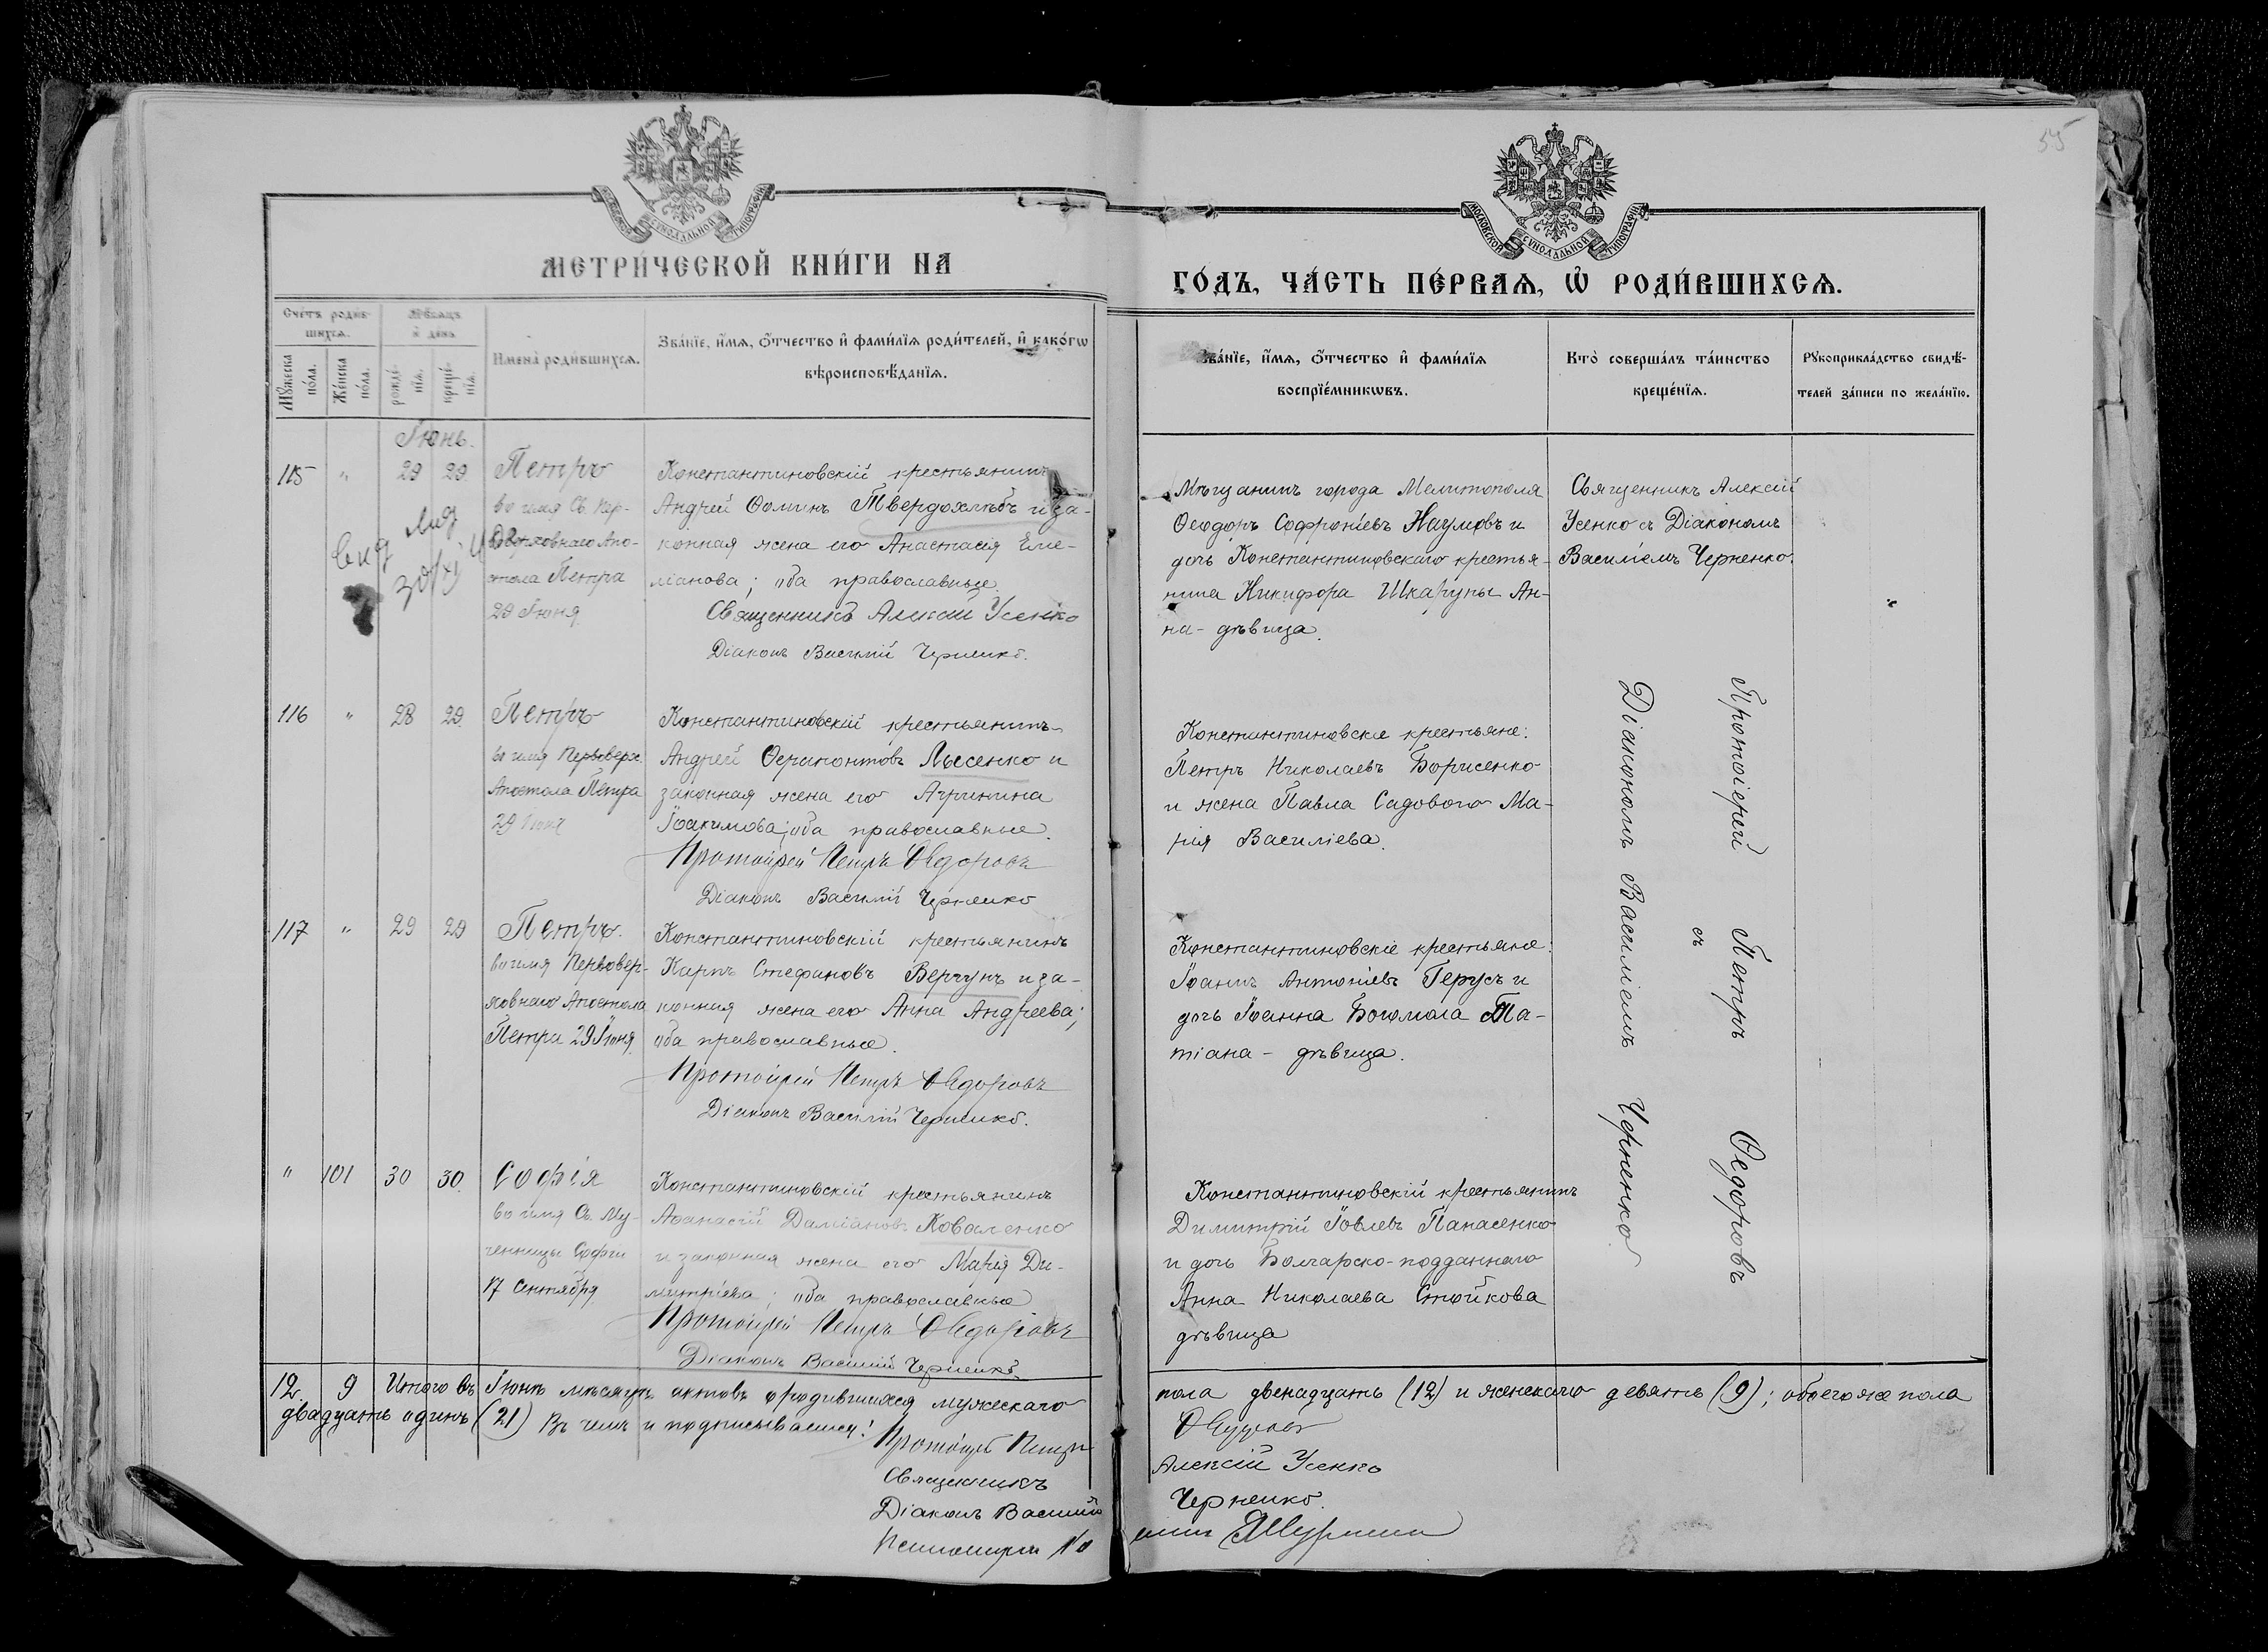 55
МОСКОВСКОЙ СѴНОДАЛЬНОЙ ТИПОГРАФІИ
МЕТРИ́ЧЕСКОЙ КНИ́ГИ НА
ГО́ДЪ, ЧА́СТЬ ПЕ́РВАѦ, Ѡ҆ РОДИ́ВШИХСѦ.
Сче́тъ роди́в-
шихсѧ.
Мѣ́сѧцъ
и҆ де́нь
Мꙋ́жеска по́ла.
Же́нска по́ла.
рожде́-
нїѧ.
креще́-
нїѧ.
И҆мена̀ роди́вшихсѧ.
Зва́нїе, и҆́мѧ, ѻ҆́тчество и҆ фами́лїѧ роди́телей, и҆ како́гѡ
вѣроисповѣ́данїѧ.
Зва́нїе, и҆́мѧ, ѻ҆́тчество и҆ фами́лїѧ
воспрїе́мникѡвъ.
Кто̀ соверша́лъ та́инство
креще́нїѧ.
Рꙋкоприкла́дство свидѣ́-
телей за́писи по жела́нїю.
Іюнь.
115 " 29 29
Петръ
во имя Св. Пер-
воверховнаго Апо-
стола Петра
29 Іюня
Константиновскій крестьянинъ
Андрей Ѳоминъ Твердохлѣбъ и за-
конная жена его Анастасія Еме-
ліанова; оба православные
Священникъ Алексій Усенко
Діаконъ Василій Черненко.
Мѣщанинъ города Мелитополя
Ѳеодоръ Софроніевъ Наумовъ и
дочь Константиновскаго крестья-
нина Никифора Шкарупы Ан-
на - дѣвица.
Священникъ Алексій
Усенко съ Діакономъ
Василіемъ Черненко.
116 " 28 29
Петръ
во имя Первоверх.
Апостола Петра
29 Іюня
Константиновскій крестьянинъ
Андрей Ѳерапонтовъ Лысенко и
законная жена его Агрипина
Іоакимова; оба православные.
Протоіерей Петръ Ѳедоровъ
Діаконъ Василій Черненко
Константиновскіе крестьяне:
Петръ Николаевъ Борисенко
и жена Павла Садового Ма-
рія Василіева.
Протоіерей Петръ Ѳедоровъ
съ
Діакономъ Василіемъ Черненко
117 " 29 29
Петръ.
во имя Первовер-
ховнаго Апостола
Петра 29 Іюня
Константиновскій крестьянинъ
Карпъ Стефановъ Вергунъ и за-
конная жена его Анна Андреева;
оба православные.
Протоіерей Петръ Ѳедоровъ
Діаконъ Василій Черненко.
Константиновскіе крестьяне:
Іоаннъ Антоніевъ Герусъ и
дочь Іоанна Богомола Та-
тіана - дѣвица.
" 101 30 30
Софія
во имя Св. Му-
ченицы Софіи
17 Сентября
Константиновскій крестьянинъ
Аѳанасій Даміановъ Коваленко
и законная жена его Марія Ди-
митріева; оба православные
Протоіерей Петръ Ѳедоровъ
Діаконъ Василій Черненко
Константиновскій крестьянинъ
Димитрій Іовлевъ Панасенко
и дочь Болгарско-подданнаго
Анна Николаева Стойкова
дѣвица
12 9 Итого въ Іюнѣ мѣсяцѣ актовъ о родившихся мужескаго пола двенадцать (12) и женскаго девять (9); обоего же пола
двадцать одинъ (21) Въ чемъ и подписываемся:
Протоіерей Петръ Ѳедоровъ
Священникъ Алексій Усенко
Діаконъ Василій Черненко.